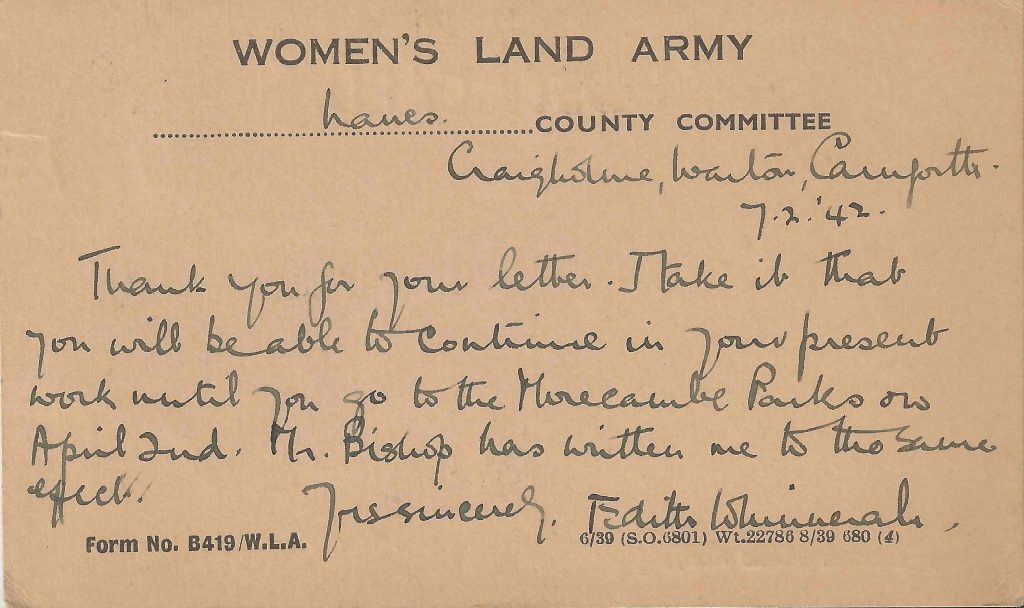 WOMEN'S LAND ARMY
Lancs. COUNTY COMMITTEE
Craigholme, Warton, Carnforth.
7.2.'42.
Thank you for your letter. I take it that
you will be able to continue in your present
work until you go to the Morecambe Parks on
April 2nd. Mr. Bishop has written me to the same
effect.
Yrs sincerely, Edith Whinnerah.
Form No. B419/W.L.A.
6/39 (S.O.6801) Wt.22786 8/39 680 (4)